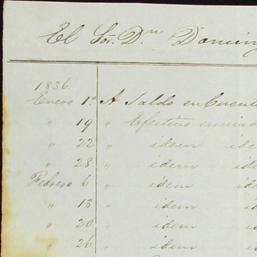 El Sor. Dn Doming
1836
Enero 1º A Saldo en Cuent
" 19 " Efectivo enviad
" 22 " idem ide
" 28 " idem id
Febrero 6 " idem id
" 13 " idem id
" 20 " idem id
" 26 " idem id